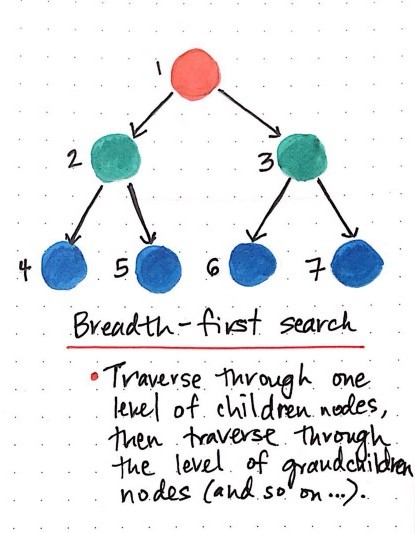 1
2 3
4 5 6 7
Breadth-first search
• Traverse through one
level of children nodes,
then traverse through
the level of grandchildren
nodes (and so on...).